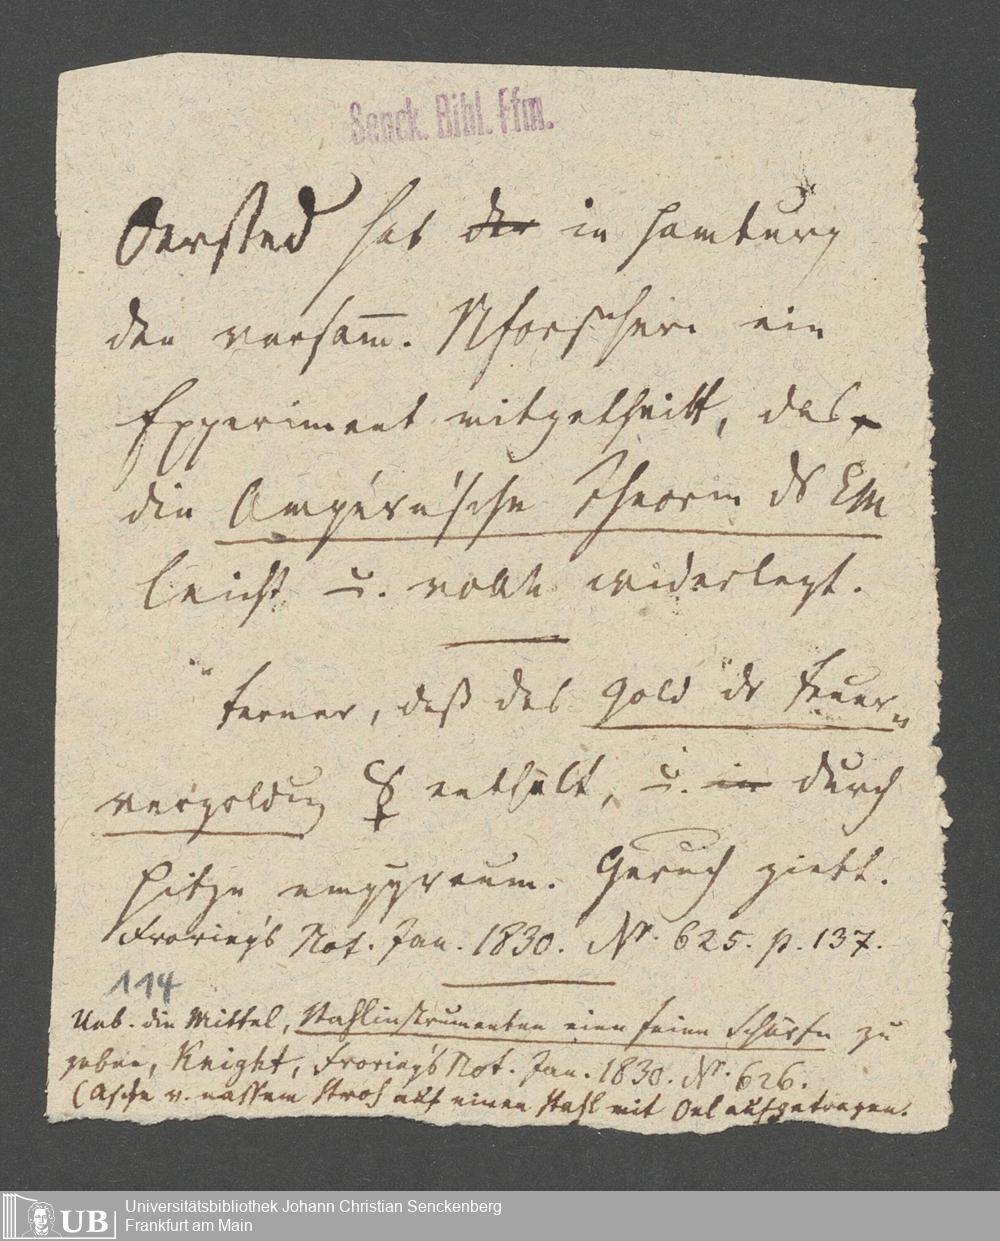 Senck. Bibl. Ffm.
Oersted hat der in Hamburg
den versam̅. Nforschern ein
Experiment mitgetheilt, das
die Ampère'sche Theorie ds EM
leicht u. widerlegt.
Ferner, daß das Gold dr Feuer=
vergoldug ☿ enthält, u. in durch
Hitze empyreum. Geruch giebt.
Froriep's Not. Jan. 1830. Nr. 625. p. 137.
114
Ueb. die Mittel, Stahlinstrumenten eine feine Schärfe zu
geben, Knight, Froriep's Not. Jan. 1830. Nr. 626.
(Asche v. nassem Stroh auf einen Stahl mit Oel aufgetragen.
UB
Universitätsbibliothek Johann Christian Senckenberg
Frankfurt am Main